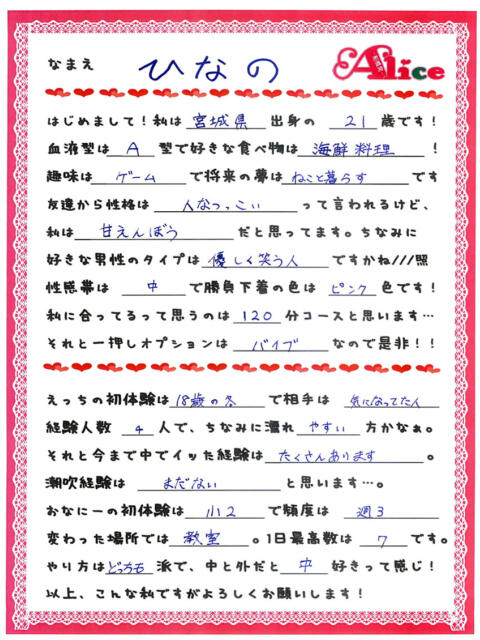 なまえ ひなの Alice
はじめまして！私は 宮城県 出身の 21 歳です！
血液型は A 型で好きな食べ物は 海鮮料理 ！
趣味は ゲーム で将来の夢は ねこと暮らす です
友達から性格は 人なつっこい って言われるけど、
私は 甘えんぼう だと思ってます。ちなみに
好きな男性のタイプは 優しく笑う人 ですかね///照
性感帯は 中 で勝負下着の色は ピンク 色です！
私に合ってるって思うのは 120 分コースと思います…
それと一押しオプションは バイブ なので是非！！
えっちの初体験は 18歳の冬 で相手は 気になってた人
経験人数 4 人で、ちなみに濡れ やすい 方かなぁ。
それと今まで中でイッた経験は たくさんあります 。
潮吹経験は まだない と思います…。
やり方は どっちも 派で、中と外だと 中 好きって感じ！
以上、こんな私ですがよろしくお願いします！